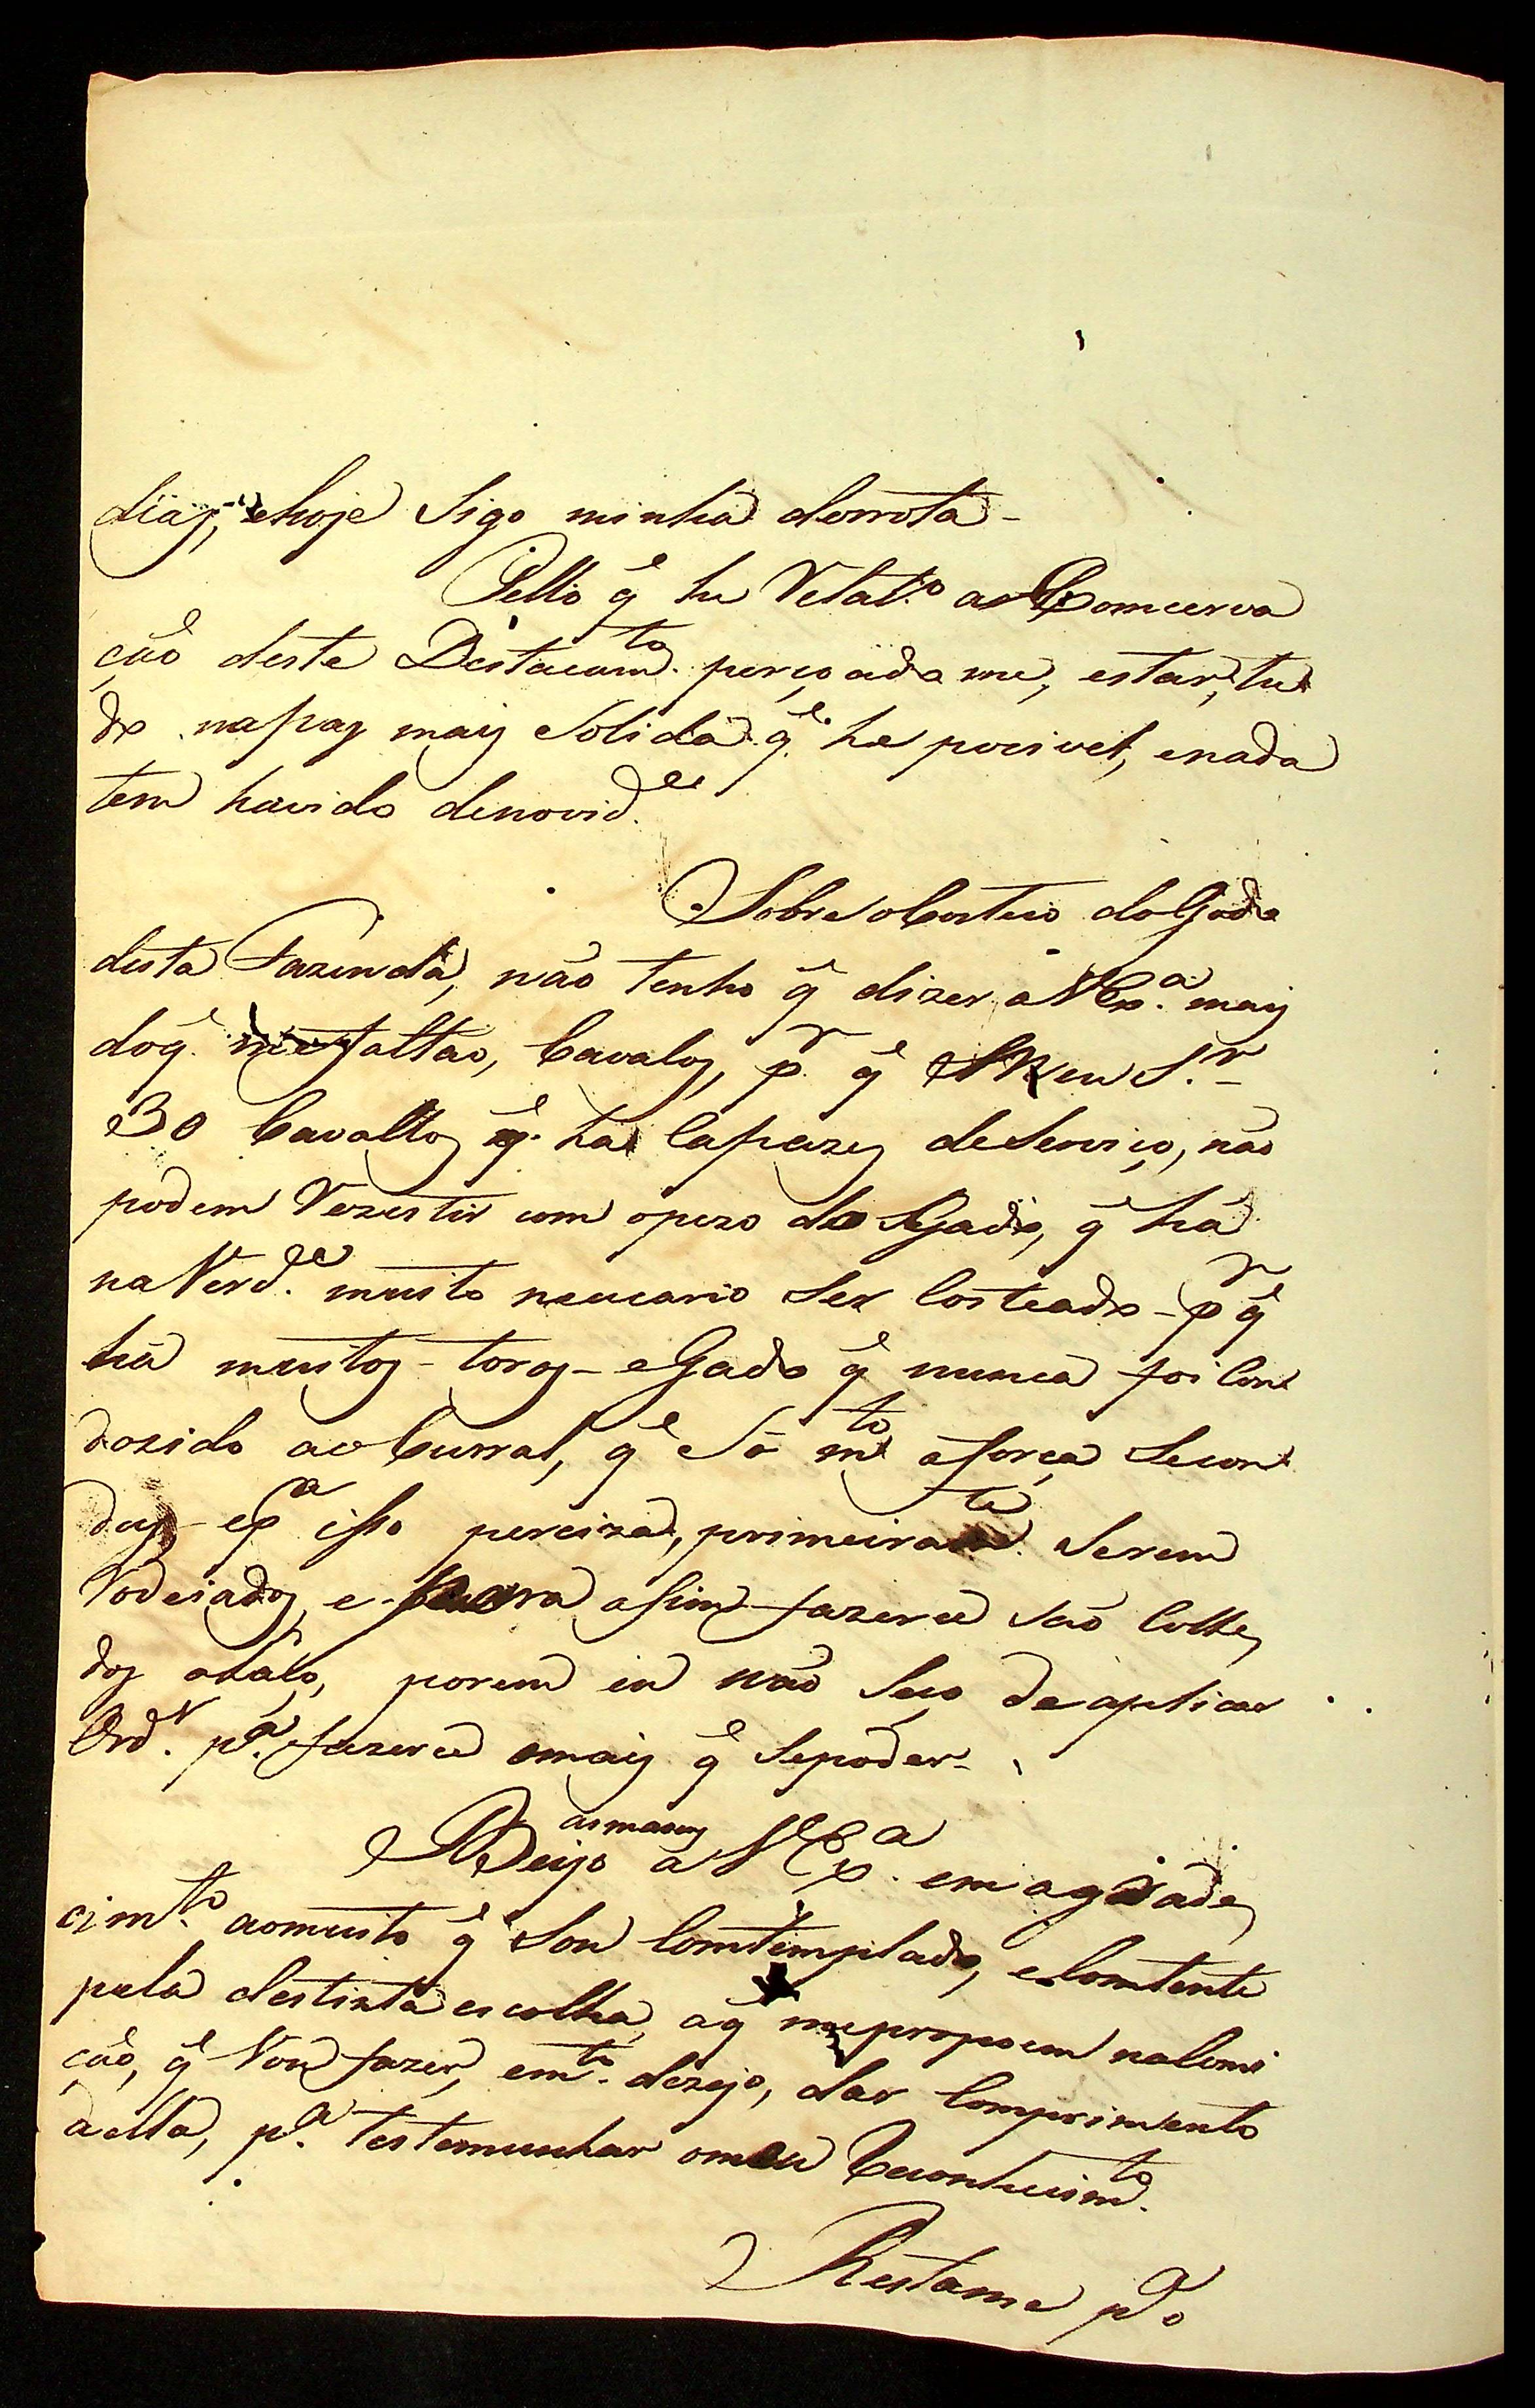 dias, ehoje Sigo minha derrota -
Pello q̃ he Relat.º a Comcerva
ção deste Destacam.to perçoadome, estar, tu
do napas mais Solida q̃ he pocivel, enada
tem havido denovid.e
Sobre oCosteio doGado
desta Fazenda, não tenho q̃ dizer aVEx.a mais
doq̃ faltão, Cavalos, p.r q̃ Meu S.r
30 Cavallos q̃ ha Capazes deServiço, não
podem Rezestir com opezo do Gado, q̃ há
naVerd.e muito necicario Ser Costeado - p.r q̃
há muitos - toros - eGado q̃ nunca foi Con
dozido aoCurral, q̃ Só m.to aforça Secon
dus - ep.a isso perciza, primeiram.te Serem
Rodeiados, e para asim fazerce São Colhe
dos aLaço, porem eu não Seço de aplicar
Ord. p.a fazerce omais q̃ Sepoder -
Beijo asmaons a V Ex.a em agrade
cim.to aomuito q̃ Sou Comtemplado, eComtente
pela destinta escolha, aq̃ mepropoem naComi
ção, q̃ Vou fazer, em.to dezejo, dar Comprimento
aella, p.a testemunhar omeu Reconhecim.to
Restame p.o